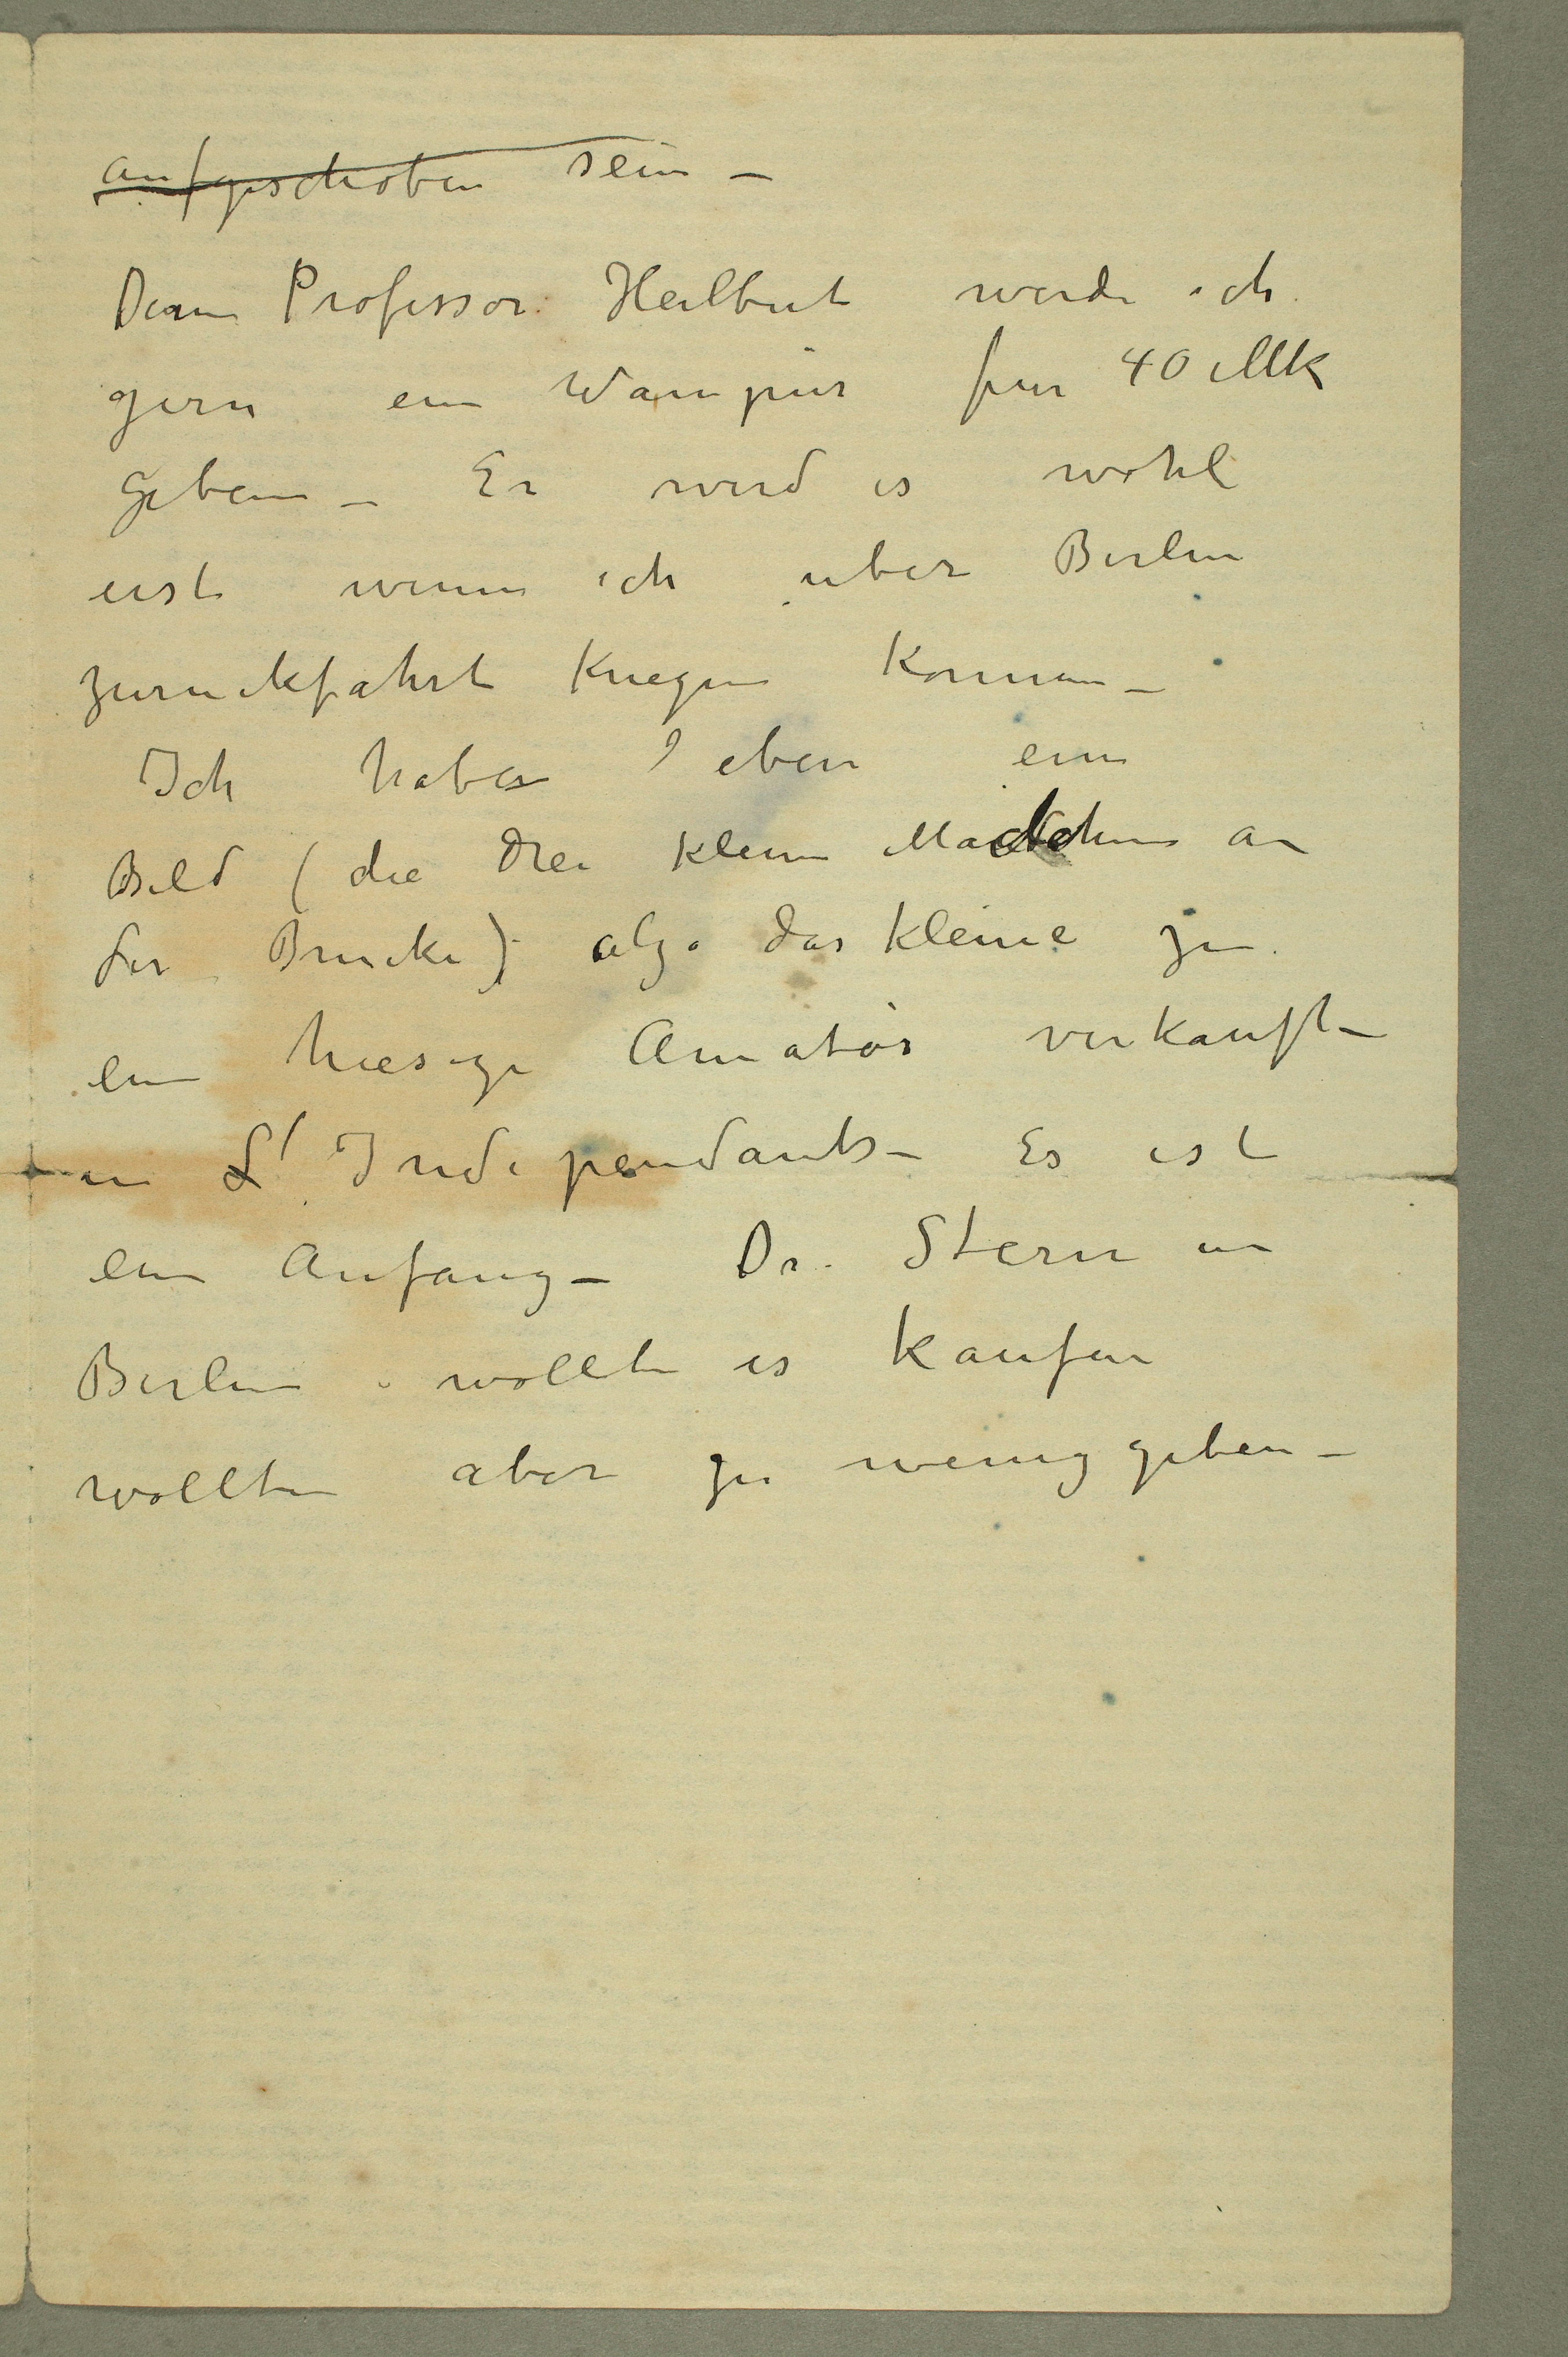 aufgeschoben sein –
Dem Professor Heilbut werde ich
gern ein Wampür für 40 Mk
geben – Er wird es wohl
erst wenn ich uber Berlin
zuruckfahrt kriegen konnen –
Ich habe eben ein
Bild (die drei kleine Madchen an
der Brucke) alzo das kleine zu
ein hiesige Amatör verkauft –
in L'Independants – Es ist
ein Anfang – Dr. Stern in
Berlin wollte es kaufen
wollte aber zu wenig geben –